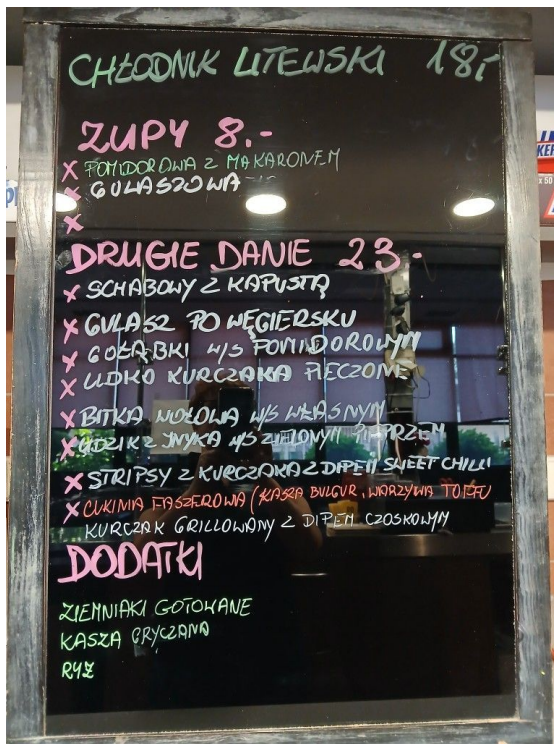 CHŁODNIK LITEWSKI 18,-
ZUPY 8.-
x POMIDOROWA Z MAKARONEM
x GULASZOWA
x
DRUGIE DANIE 23.-
x SCHABOWY Z KAPUSTĄ
x GULASZ PO WĘGIERSKU
x GOŁĄBKI W/S POMIDOROWYM
x UDKO KURCZAKA PIECZONE
x BITKA WOŁOWA W/S WŁASNYM
x UDZIK Z W/S ZIELONYM PIEPRZEM
x STRIPSY Z KURCZAKA Z DIPEM SWEET CHILLI
x CUKINIA FASZEROWA (KASZA BULGUR, WARZYWA TOFU
KURCZAK GRILLOWANY Z DIPEM CZOSKOWYM
DODATKI
ZIEMNIAKI GOTOWANE
KASZA GRYCZANA
RYŻ